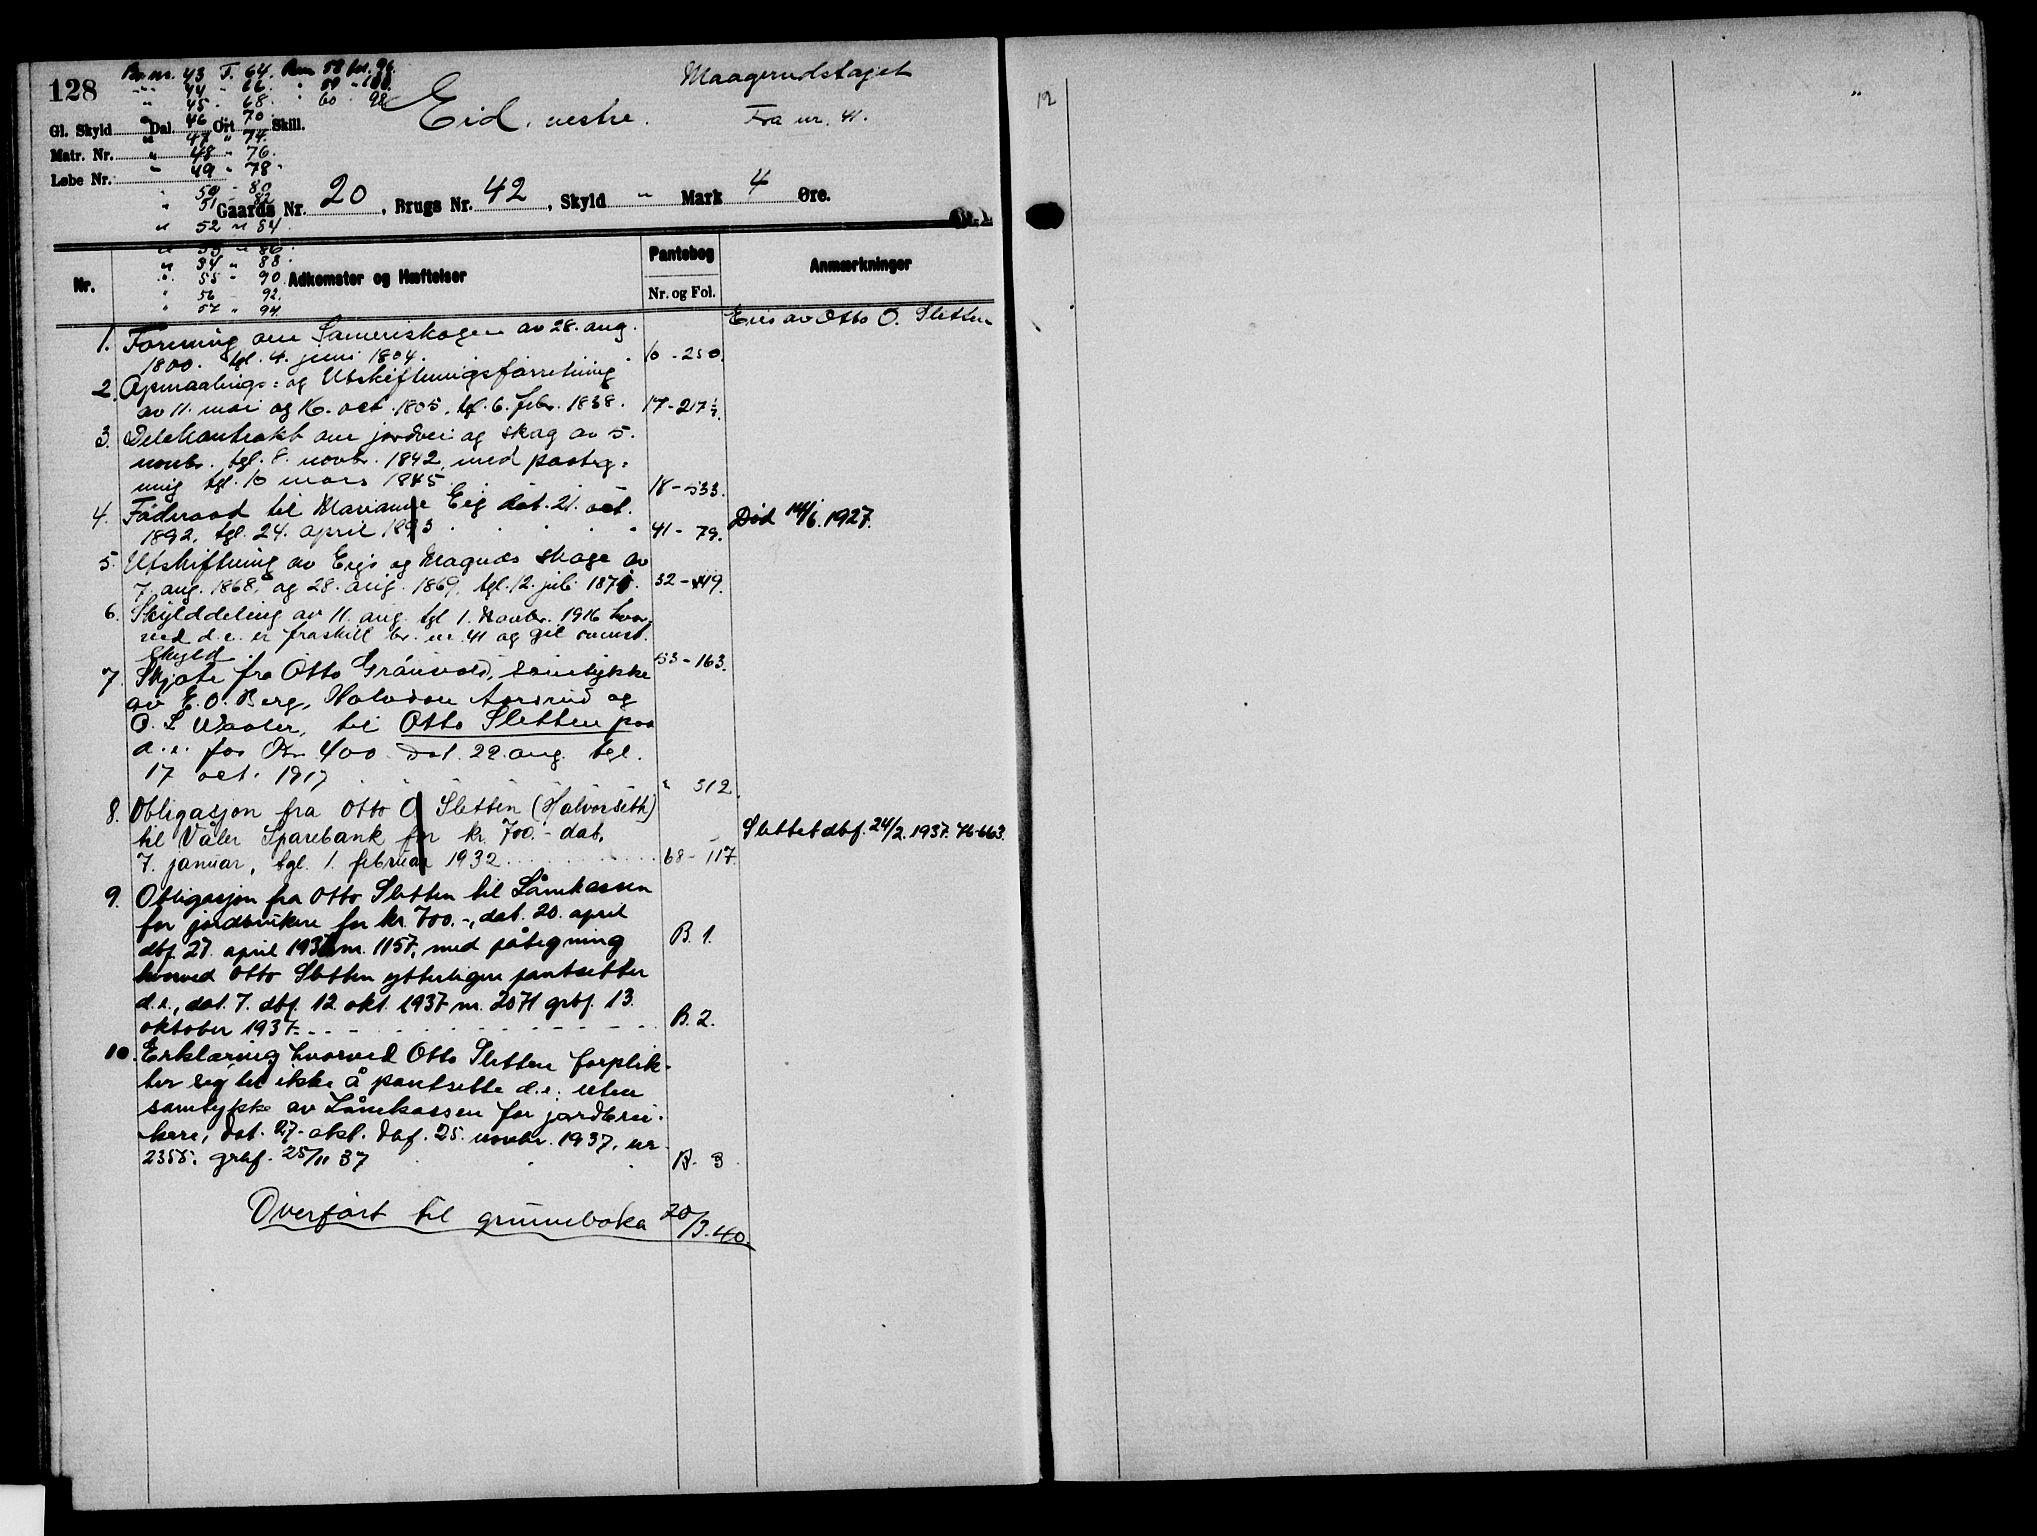 128
Br. nr. 43 F. 64. Br. nr. 58 fol. 96.
" 44 " 66. " 59 " 100.
" 45 " 68. " 60 " 98.
Eid, vestre.
Maagerudstaget
Fra nr. 41.
Gl. Skyld Dal. Ort Skill.
" 46 " 70.
" 47 " 74.
Matr. Nr.
" 48 " 76.
Løbe Nr.
" 49 " 78.
" 50 " 80
" 51 " 82
Gaards Nr. 20, Brugs Nr. 42, Skyld " Mark 4 Øre.
" 52 " 84.
" 53 " 86.
" 54 " 88.
" 55 " 90.
" 56 " 92.
" 57 " 94.
Nr.
Adkomster og Hæftelser
Pantebog
Nr. og Fol.
Anmærkninger
Eies av Otto O. Sletten
1. Forening om Sameiskogen av 28. aug.
1800. tgl. 4. juni 1804. 10 - 250.
2. Opmaalings- og Utskiftningsforretning
av 11. mai og 16. oct. 1805, tgl. 6. febr. 1838. 17 - 217½
3. Delekontrakt om jordvei og skog av 5.
novbr. tgl. 8. novbr. 1842, med paateg-
ning tgl. 10 mars 1845. 18 - 533.
4. Føderaad til Marianne Eig dat. 21. oct.
1892, tgl. 24. april 1893 41 - 79. Død 14/6. 1927.
5. Utskiftning av Eigs og Magnæs skoge av
7. aug. 1868, og 28. aug. 1869, tgl. 12. juli 1870. 32 - 449.
6. Skylddeling av 11. aug. tgl 1. Novbr. 1916 hvor-
ved d.e. er fraskilt br. nr. 41 og git ovenst.
skyld. 53 - 163.
7. Skjøte fra Otto Grønvold, samtykke
av E. O. Berg, Halvdan Aasrud og
O. L Waaler, til Otto Sletten paa
d.e. for Kr 400. dat. 22. aug. tgl.
17 oct. 1917 " 512.
8. Obligasjon fra Otto O Sletten (Halvorseth)
til Våler Sparebank for kr. 700.- dat. Slettet dbf. 24/2. 1937. 76-663.
7. januar, tgl. 1. februar 1932 68 - 117.
9. Obligasjon fra Otto Sletten til Lånekassen
for jordbrukere for kr. 700.-, dat. 20. april
dbf. 27. april 1937 nr. 1157, med påtegning B. 1.
hvorved Otto Sletten ytterligere pantsetter
d.e., dat. 7. dbf. 12. okt. 1937 nr. 2071 grbf. 13.
oktober 1937. B. 2.
10. Erklæring hvorved Otto Sletten forplik-
ter sig til ikke å pantsette d.e. uten
samtykke av Lånekassen for jordbru-
kere, dat. 27. okt. dbf. 25. novbr. 1937, nr.
2355, grbf. 25/11 37 B. 3
Overført til grunnboka 20/3. 40.
12
"